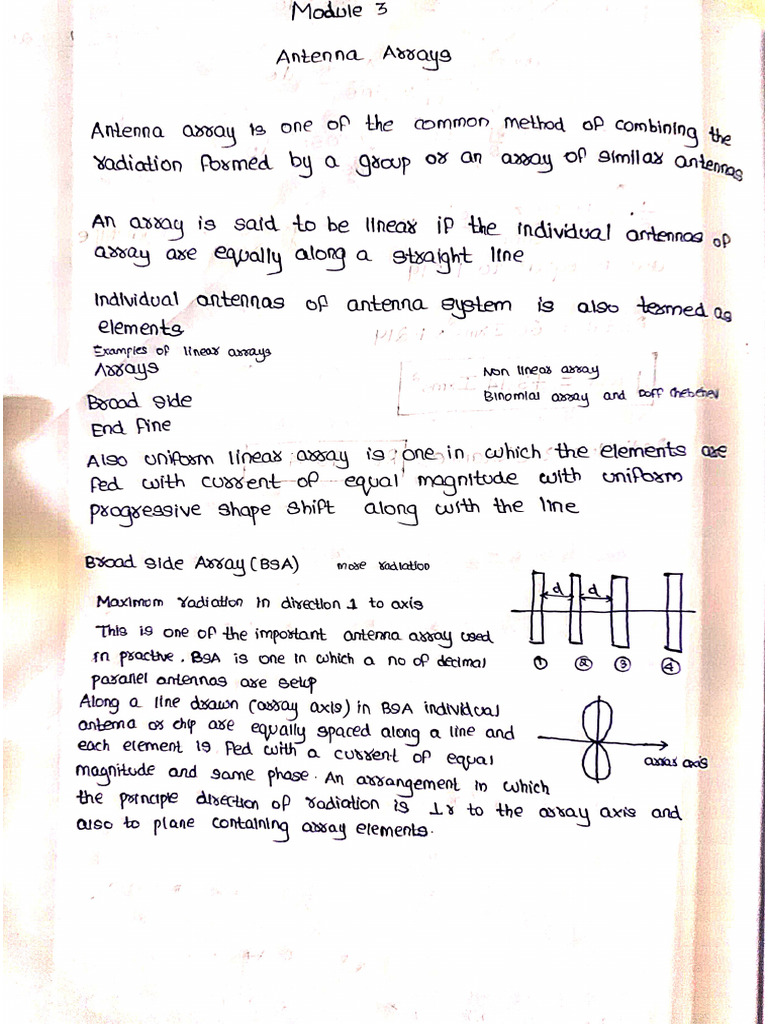 Module 3
Antenna Arrays
Antenna array is one of the common method of combining the
radiation formed by a group or an array of similar antennas
An array is said to be linear if the individual antennas of
array are equally along a straight line
Individual antennas of antenna system is also termed as
elements
Examples of linear arrays
Arrays
Non linear array
Broad side
Binomial array and Doff chebchev
End fine
Also uniform linear array is one in which the elements are
fed with current of equal magnitude with uniform
progressive shape shift along with the line
Broad side Array (BSA) more radiation
Maximum radiation in direction ⊥ to axis
d d
This is one of the important antenna array used
in practive. BSA is one in which a no of decimal
① ② ③ ④
paranel antennas are setup
Along a line drawn (array axis) in BSA individual
antema or chip are equally spaced along a line and
each element is fed with a current of equal
array axis
magnitude and same phase. An arrangement in which
the principle direction of radiation is ⊥r to the array axis and
also to plane containing array elements.